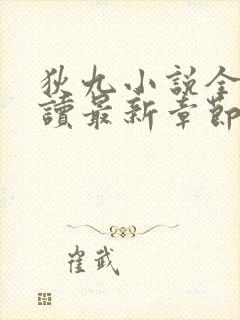 狄九小説全
讀最新章節
崔武